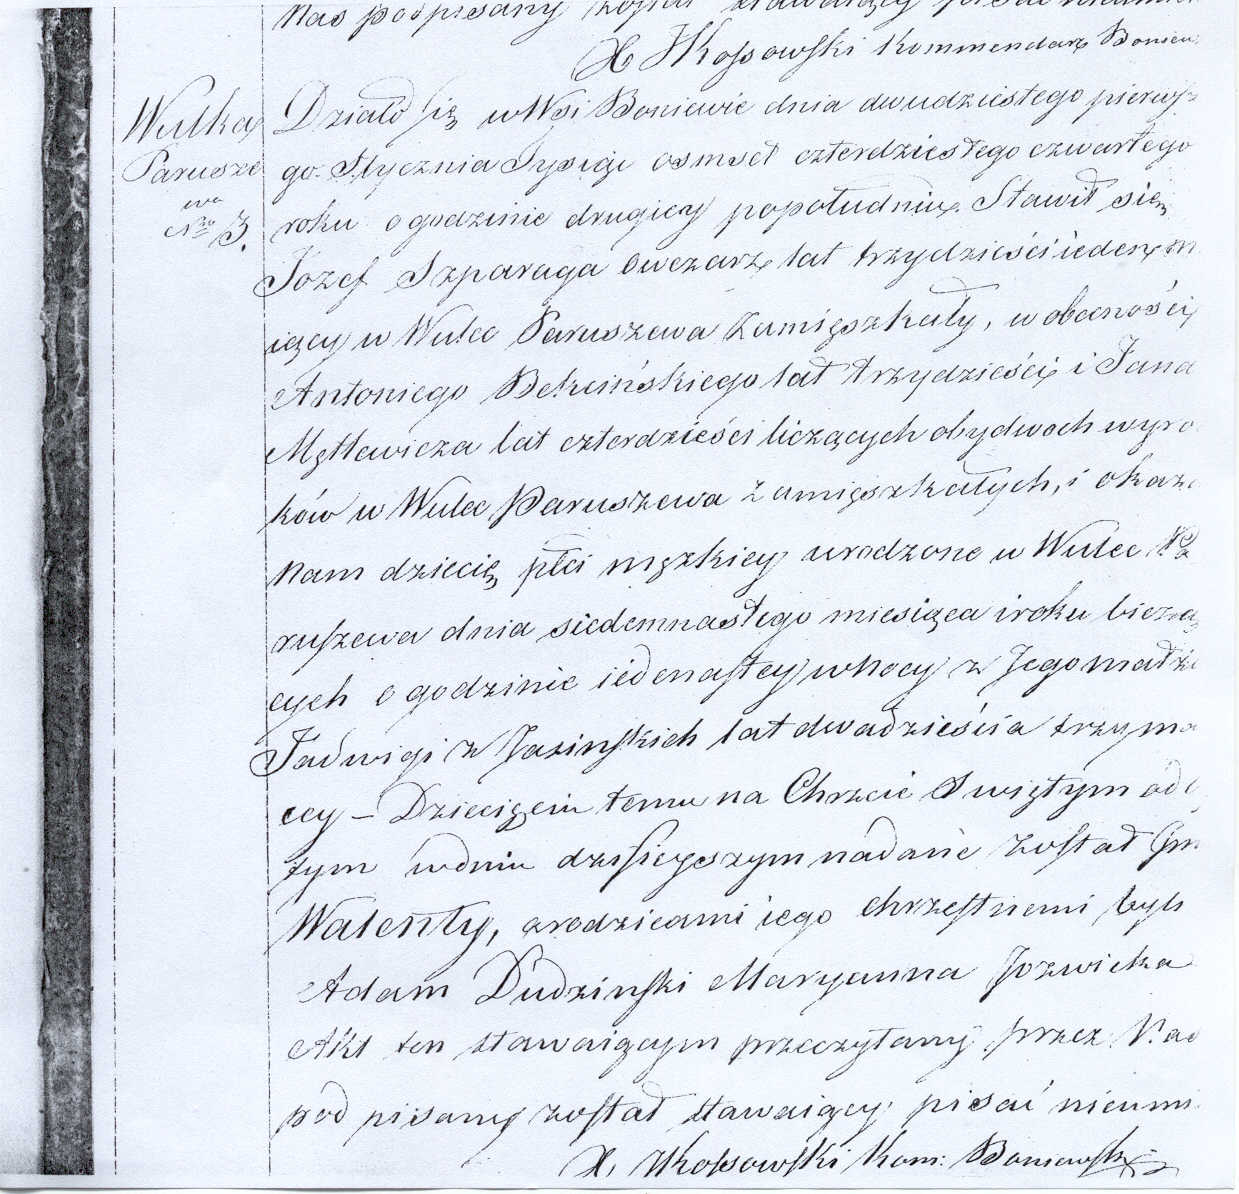 nas podpisany został stawaiący pisać
X JKossowski Kommendarz Boniew
Wulka
Parusze
wa
Nro 3.
Działo się w Wsi Boniewie dnia dwudziestego pierwsz
go Stycznia Tysiąc osmset czterdziestego czwartego
roku o godzinie drugiey popołudniu. Stawił się
Jozef Szparaga Owczarz lat trzydzieści ieden m
iący w Wulce Paruszewa zamięszkały, w obecności
Antoniego Bekcińskiego lat trzydzieści i Jana
Mętlewicza lat czterdzieści liczących obydwoch wyro
ków w Wulce Paruszewa zamięszkałych, i okaza
nam dziecię płci męzkiey urodzone w Wulce Pa
ruszewa dnia siedemnastego miesiąca i roku bieżą
cych o godzinie iedenastey w nocy z Jego małżo
Jadwigi z Jasinskich lat dwadzieścia trzy ma
cey – Dziecięciu temu na Chrzcie Swiętym odby
tym w dniu dzisieyszym nadane został Jm
Walenty, a rodzicami iego chrzestnemi byli
Adam Dudzinski Maryanna Jozwicka
Akt ten stawaiącym przeczytany przez Nas
pod pisany został stawaiący pisać nieumi
X. JKossowski Kom: Boniewski